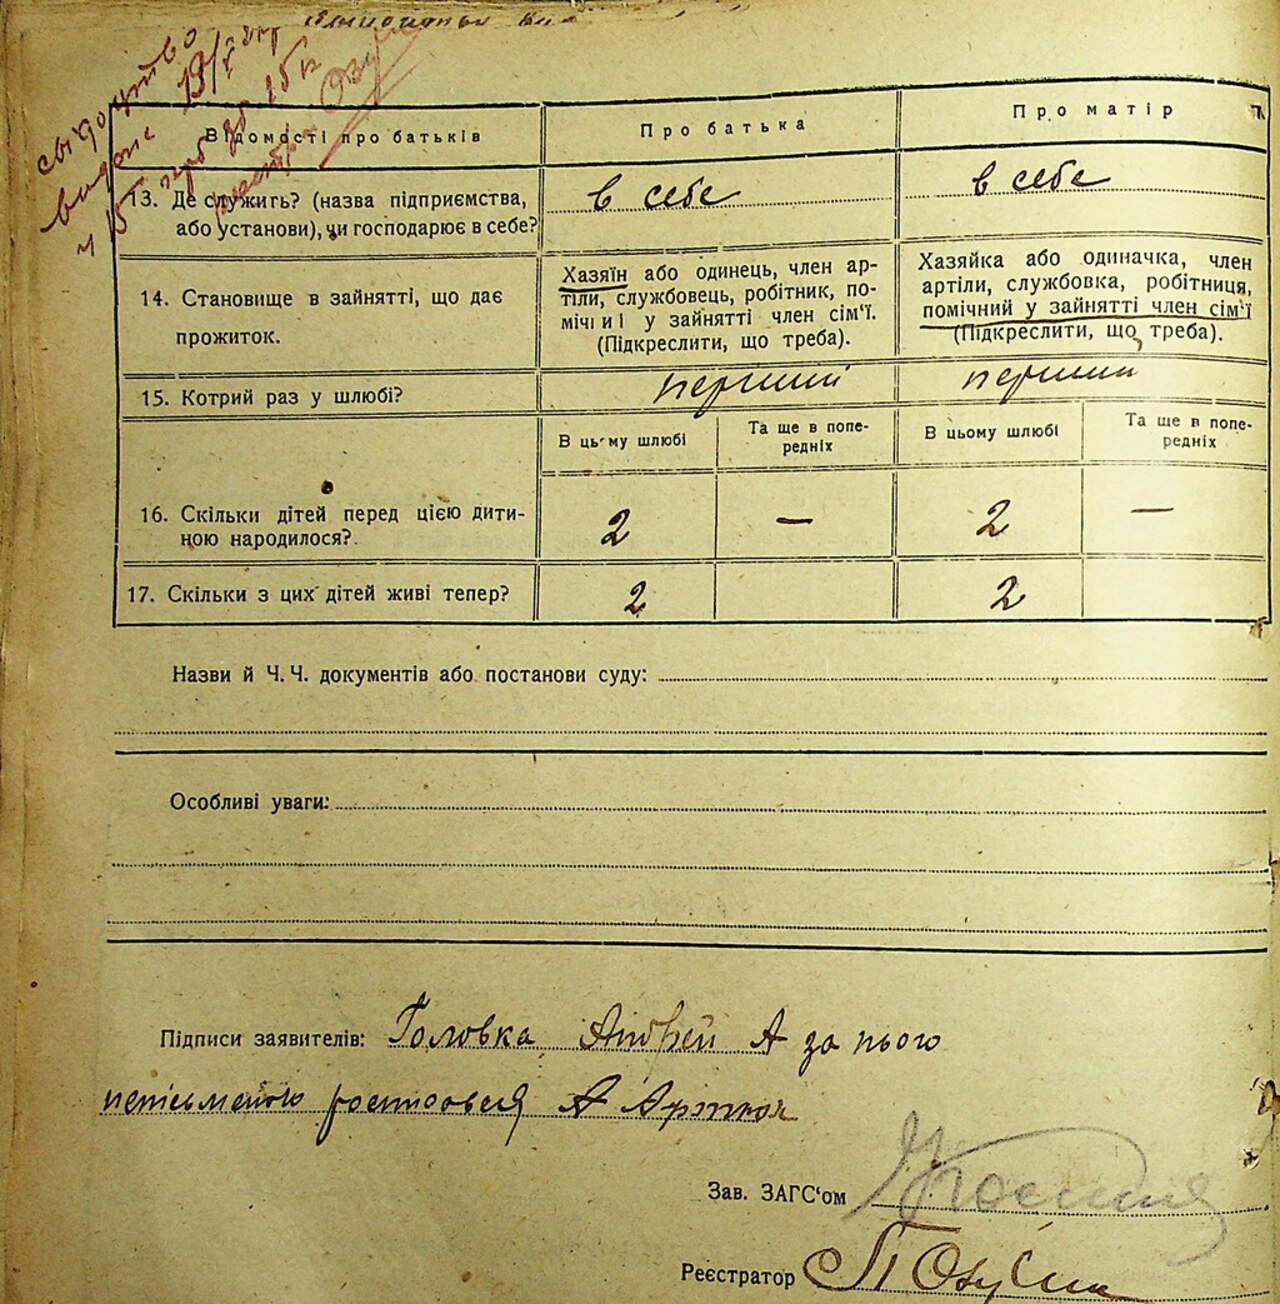 свідоцтво
видане 13/V
Відомості про батьків
Про батька
Про матір
13. Де служить? (назва підприємства,
або установи), чи господарює в себе?
в себе
в себе
14. Становище в зайнятті, що дає
прожиток.
Хазяїн або одинець, член ар-
тіли, службовець, робітник, по-
мічний у зайнятті член сім'ї.
(Підкреслити, що треба).
Хазяйка або одиначка, член
артіли, службовка, робітниця,
помічний у зайнятті член сім'ї
(Підкреслити, що треба).
15. Котрий раз у шлюбі?
перший
перший
В цьому шлюбі
Та ще в попе-
редніх
В цьому шлюбі
Та ще в попе-
редніх
16. Скільки дітей перед цією дити-
ною народилося?
2
—
2
—
17. Скільки з цих дітей живі тепер?
2
2
Назви й Ч. Ч. документів або постанови суду:
Особливі уваги:
Підписи заявителів: Головка Андрей А за нього
А
Зав. ЗАГС'ом
Реєстратор